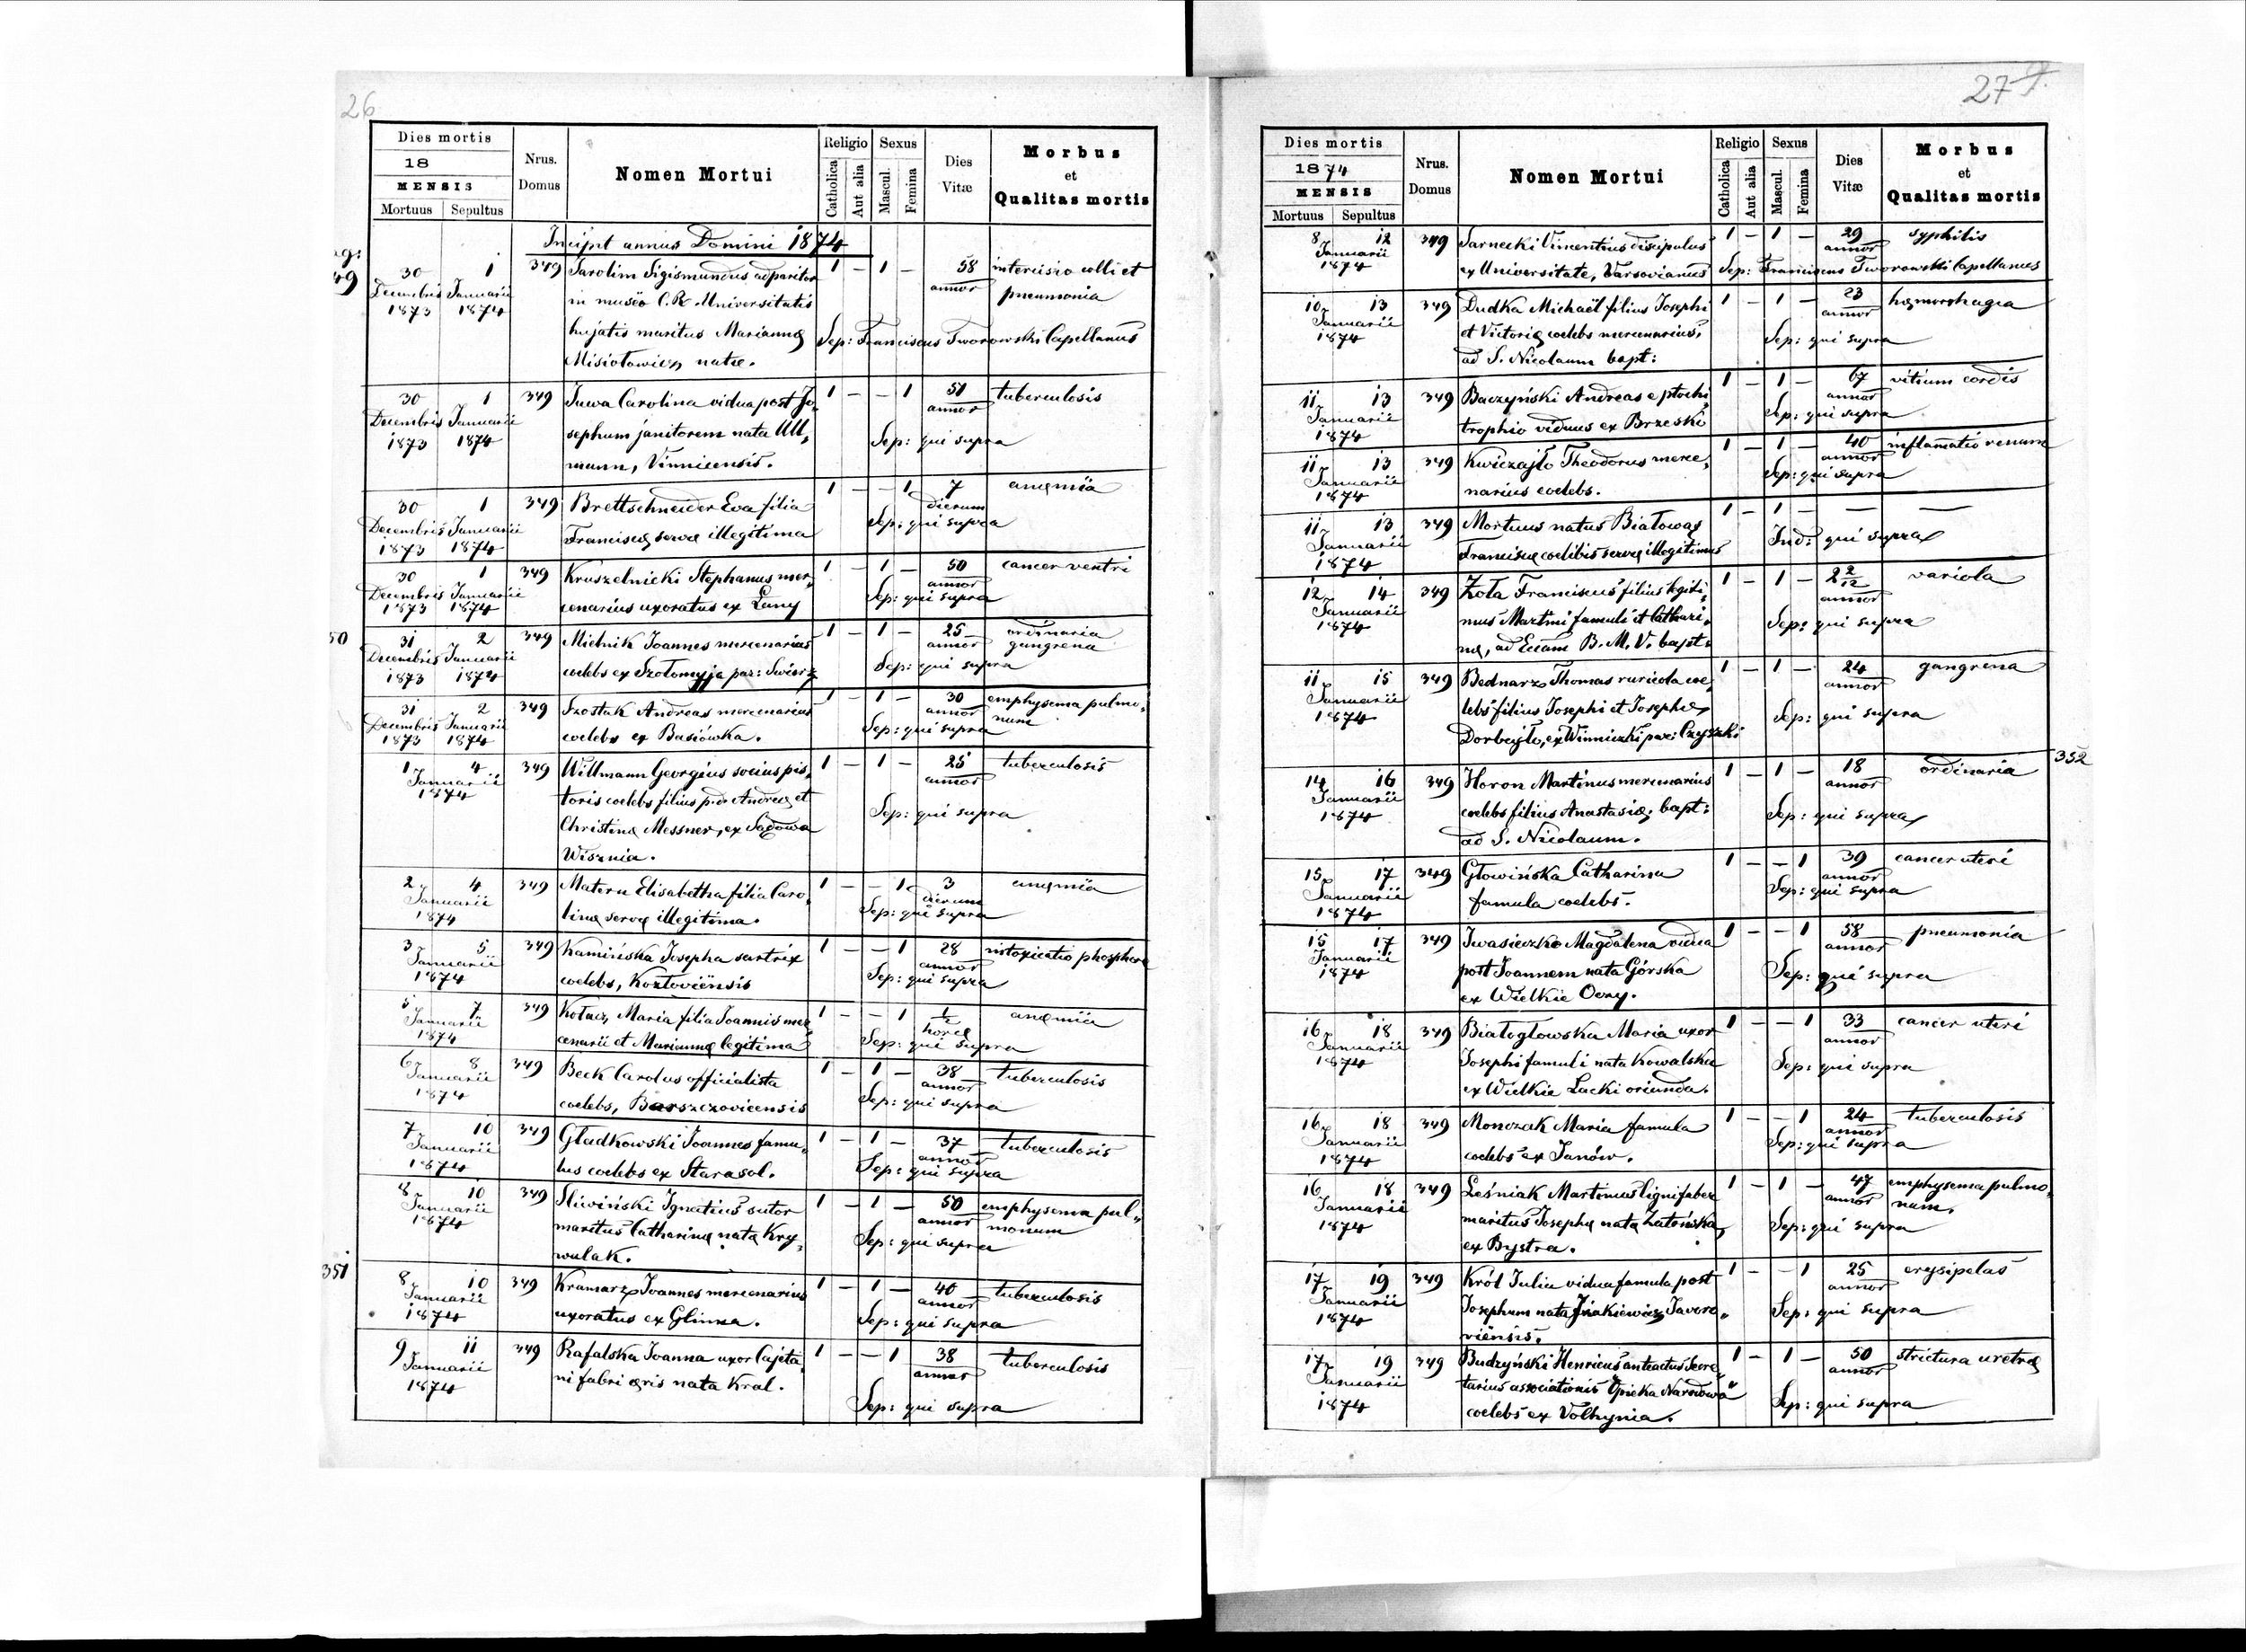 26
Dies mortis
18
MENSIS
Mortuus Sepultus
Nrus. Domus
Nomen Mortui
Religio
Catholica Aut alia
Sexus
Mascul. Femina
Dies Vitæ
Morbus
et
Qualitas mortis
Incipit annus Domini 1874
30 1 349 Sarolim Sigismundus adparitor 1 – 1 – 58 intercisio colli et
Decembris Januarii in museo C.R. Universitatis annor pneumonia
1873 1874 hujatis maritus Mariannę Sep: Franciscus Tworowski Capellanus
Misiołowicz natæ.
30 1 349 Juwa Carolina vidua post Jo„ 1 – – 1 51 tuberculosis
Decembris Januarii sephum janitorem nata Ull„ annor
1873 1874 mann, Vinnicensis. Sep: qui supra
30 1 349 Brettschneider Eva filia 1 – – 1 7 anęmia
Decembris Januarii Franciscę servę illegitima dierum
1873 1874 Sep: qui supra
30 1 349 Kruszelnicki Stephanus mer„ 1 – 1 – 50 cancer ventri
Decembris Januarii cenarius uxoratus ex Łany annor
1873 1874 Sep: qui supra
50
31 2 349 Mielnik Joannes mercenarius 1 – 1 – 25 ordinaria
Decembris Januarii coelebs ex Szołomyja par: Swirz annor gangrena
1873 1874 Sep: qui supra
31 2 349 Szostak Andreas mercenarius 1 – 1 – 30 emphysema pulmo„
Decembris Januarii coelebs ex Basiówka. annor num
1873 1874 Sep: qui supra
1 4 349 Willmann Georgius socius pis„ 1 – 1 – 25 tuberculosis
Januarii toris coelebs filius p.d. Andreę et annor
1874 Christinę Messner, ex Sądowa Sep: qui supra
Wisznia.
2 4 349 Matern Elisabetha filia Caro„ 1 – – 1 3 anęmia
Januarii linę servę illegitima. dierum
1874 Sep: qui supra
3 5 349 Kamińska Josepha sartrix 1 – – 1 28 intoxicatio phosphore
Januarii coelebs, Koztoviënsis annor
1874 Sep: qui supra
5 7 349 Kołacz Maria filia Joannis mer„ 1 – – 1 ½ anęmia
Januarii cenarii et Mariannę legitima horę
1874 Sep: qui supra
6 8 349 Beck Carolus officialista 1 – 1 – 38 tuberculosis
Januarii coelebs, Barszczovicensis annor
1874 Sep: qui supra
7 10 349 Gładkowski Joannes famu„ 1 – 1 – 37 tuberculosis
Januarii lus coelebs ex Starasol. annor
1874 Sep: qui supra
8 10 349 Sliwiński Ignatius sutor 1 – 1 – 50 emphysema pul„
Januarii maritus Catharinę natę Kry„ annor monum
1874 wulak. Sep: qui supra
351
8 10 349 Kramarz Joannes mercenarius 1 – 1 – 40 tuberculosis
Januarii uxoratus ex Glinna. annor
1874 Sep: qui supra
9 11 349 Rafalska Joanna uxor Cajeta„ 1 – – 1 38 tuberculosis
Januarii ni fabri ęris nata Kral. annor
1874 Sep: qui supra
27
Dies mortis
1874
MENSIS
Mortuus Sepultus
Nrus. Domus
Nomen Mortui
Religio
Catholica Aut alia
Sexus
Mascul. Femina
Dies Vitæ
Morbus
et
Qualitas mortis
8 12 349 Sarnecki Vincentius discipulus 1 – 1 – 29 syphilis
Januarii annor
1874 ex Universitate, Varsovianus Sep: Franciscus Tworowski Capellanus
10 13 349 Dudka Michaël filius Josephi 1 – 1 – 23 hęmorrhagia
Januarii et Victorię coelebs mercenarius, annor
1874 ad S. Nicolaum bapt: Sep: qui supra
11 13 349 Baczyński Andreas e ptochi„ 1 – 1 – 67 vitium cordis
Januarii trophio viduus ex Brzeski annor
1874 Sep: qui supra
11 13 349 Kwiczajło Theodorus merce„ 1 – 1 – 40 inflamatio renum
Januarii narius coelebs. annor
1874 Sep: qui supra
11 13 349 Mortuus natus Białowąs 1 – 1 – — —
Januarii Franciscę coelibis servę illegitimus Ind: qui supra
1874
12 14 349 Zoła Franciscus filius legiti„ 1 – 1 – 2 2/12 variola
Januarii mus Martini famuli et Cathari„ annor
1874 nę, ad Eccam B. M. V. bapt. Sep: qui supra
11 15 349 Bednarz Thomas ruricola coe„ 1 – 1 – 24 gangrena
Januarii lebs filius Josephi et Josephę annor
1874 Dorbajło, ex Winniczki par: Czyszki Sep: qui supra
352
14 16 349 Horon Martinus mercenarius 1 – 1 – 18 ordinaria
Januarii coelebs filius Anastasię, bapt: annor
1874 ad S. Nicolaum. Sep: qui supra
15 17 349 Głowińska Catharina 1 – – 1 39 cancer uteri
Januarii famula coelebs. annor
1874 Sep: qui supra
15 17 349 Iwasieczko Magdalena vidua 1 – – 1 58 pneumonia
Januarii post Joannem nata Górska annor
1874 ex Wielkie Oczy. Sep: qui supra
16 18 349 Białogłowska Maria uxor 1 – – 1 33 cancer uteri
Januarii Josephi famuli nata Kowalska annor
1874 ex Wielkie Lacki oriunda. Sep: qui supra
16 18 349 Monczak Maria famula 1 – – 1 24 tuberculosis
Januarii coelebs ex Janów. annor
1874 Sep: qui supra
16 18 349 Leśniak Martinus lignifaber 1 – 1 – 47 emphysema pulmo„
Januarii maritus Josephę natę Zatońska, annor num.
1874 ex Bystra. Sep: qui supra
17 19 349 Król Julia vidua famula post 1 – – 1 25 erysipelas
Januarii Josephum nata Jnakiewicz Javoro„ annor
1874 viënsis. Sep: qui supra
17 19 349 Budzyński Henricus anteactus Secre„ 1 – 1 – 50 strictura uretrę
Januarii tarius associationis "Opieka Narodowa" annor
1874 coelebs ex Volhynia. Sep: qui supra